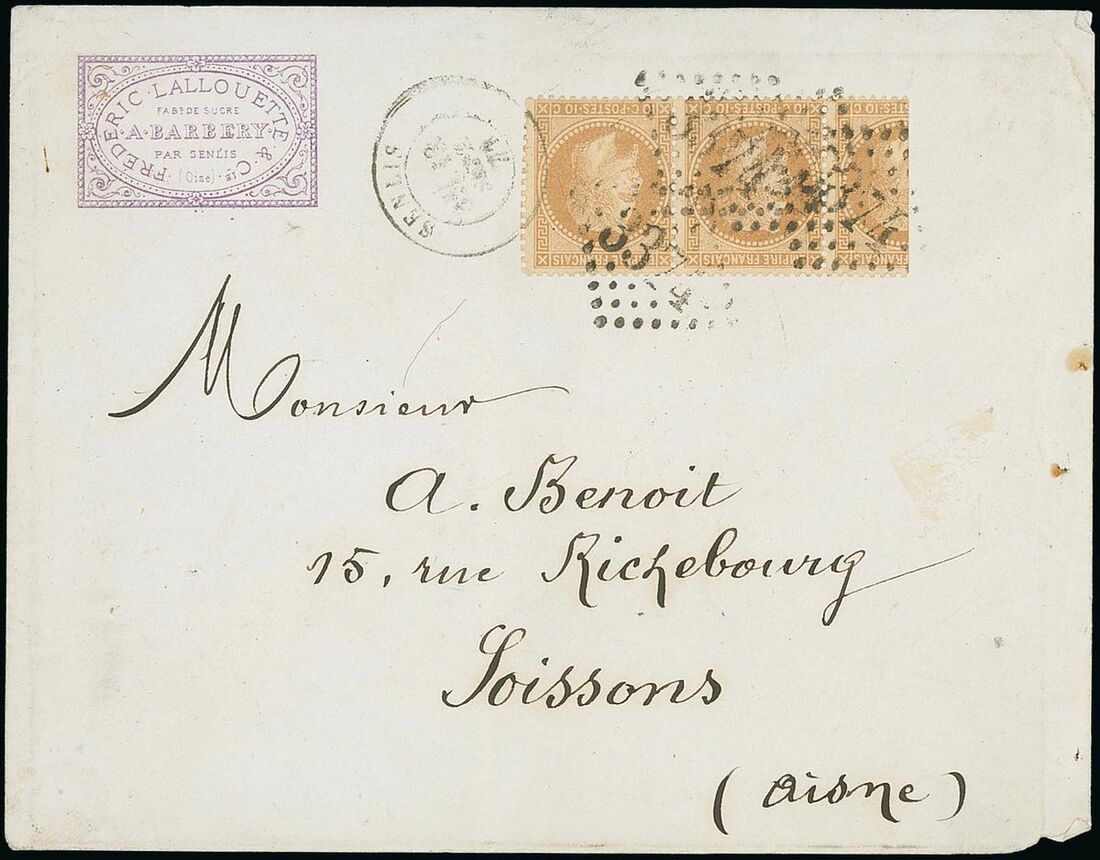 FREDERIC LALLOUETTE & Cie
FABts DE SUCRE
A. BARBERY.
PAR SENLIS
(Oise)
SENLIS
C-POSTES-10 C
C-POSTES-10 C
EMPIRE FRANÇAIS
Monsieur
A. Benoit
15, rue Richebourg
Soissons
(Aisne)